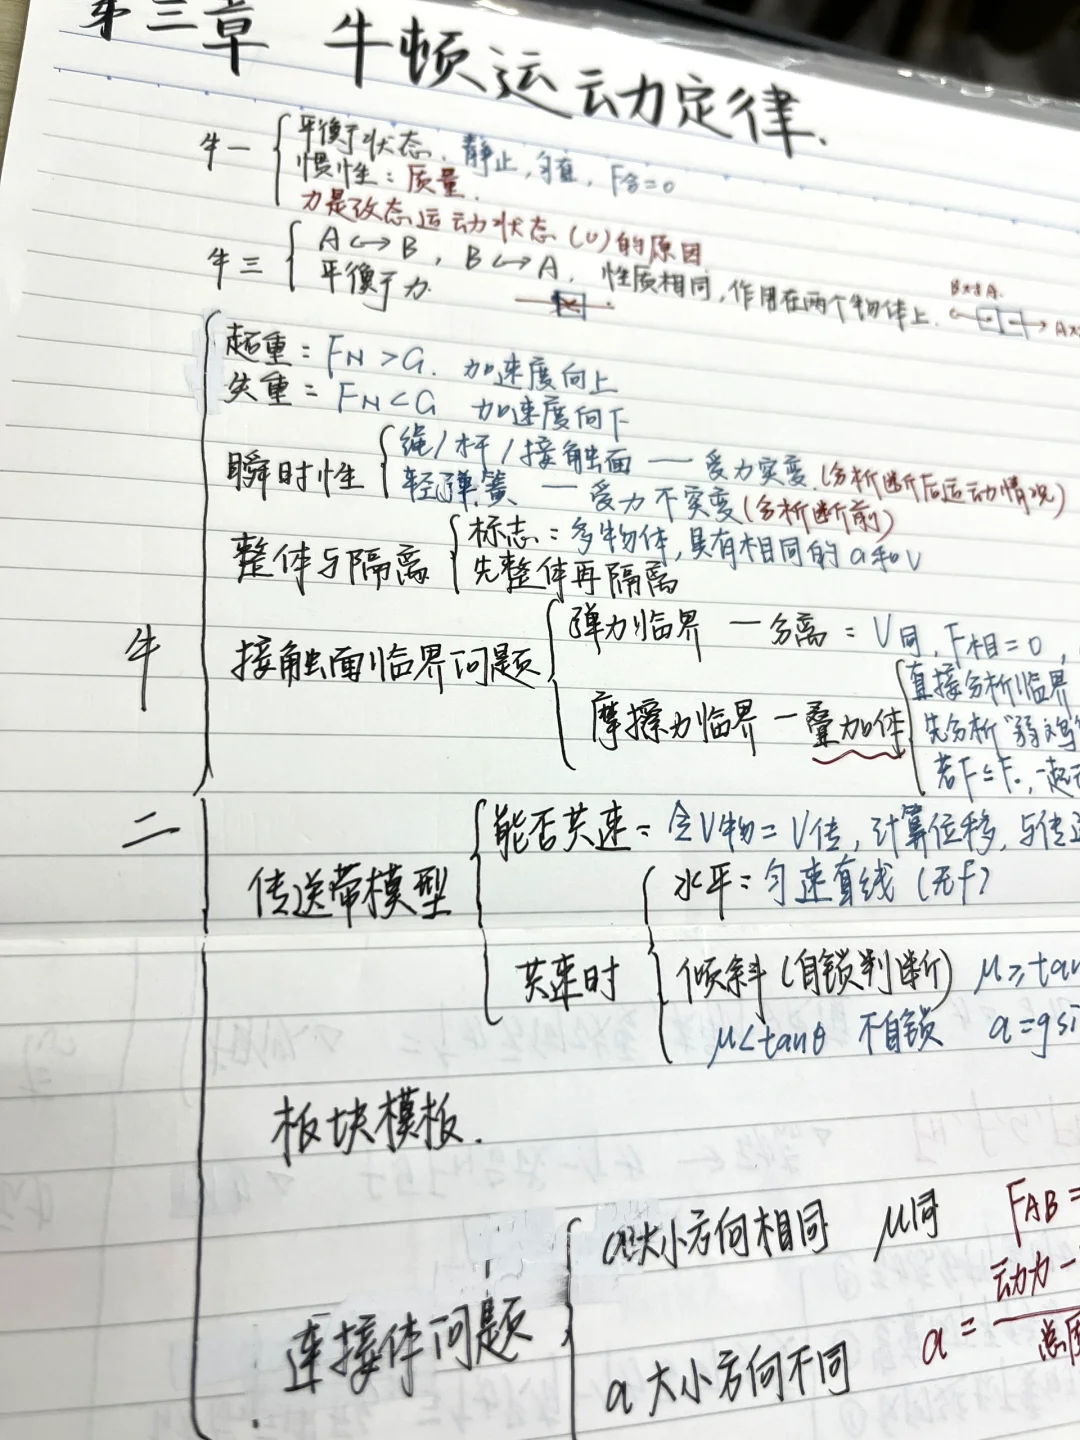 第三章 牛顿运动力定律.
牛一 平衡于状态. 静止, 匀直, F合=0
惯性: 质量.
力是改态运动状态(υ)的原因
牛三 A↔B, B↔A. 性质相同, 作用在两个物体上. B对A
平衡于力. A对
超重: FN>G. 加速度向上
失重: FN<G 加速度向下
瞬时性 绳/杆/接触面 — 受力突变.(分析断后运动情况)
轻弹簧 — 受力不突变(分析断前)
整体与隔离 标志: 多物体, 具有相同的a和v
先整体再隔离
接触面临界问题 弹力临界 — 分离: V同, F相=0,
摩擦力临界 — 叠加体 直接分析临界
先分析"弱鸡
若F≤F₀, 一起
牛
二
传送带模型 能否共速: 令V物=V传, 计算位移, 与传送
共速时 水平: 匀速直线(无f)
倾斜(自锁判断) μ≥tan
μ<tanθ 不自锁 a=gsi
板块模板.
连接体问题 a大小方向相同 μ同 FAB=
a大小方向不同 a= 动力-
总质